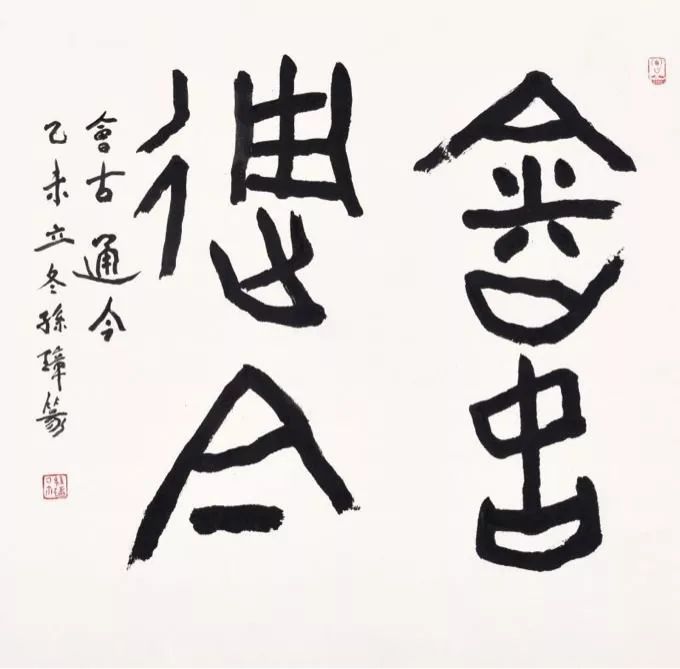 會古
通今
會古通今
乙未立冬孫璋篆